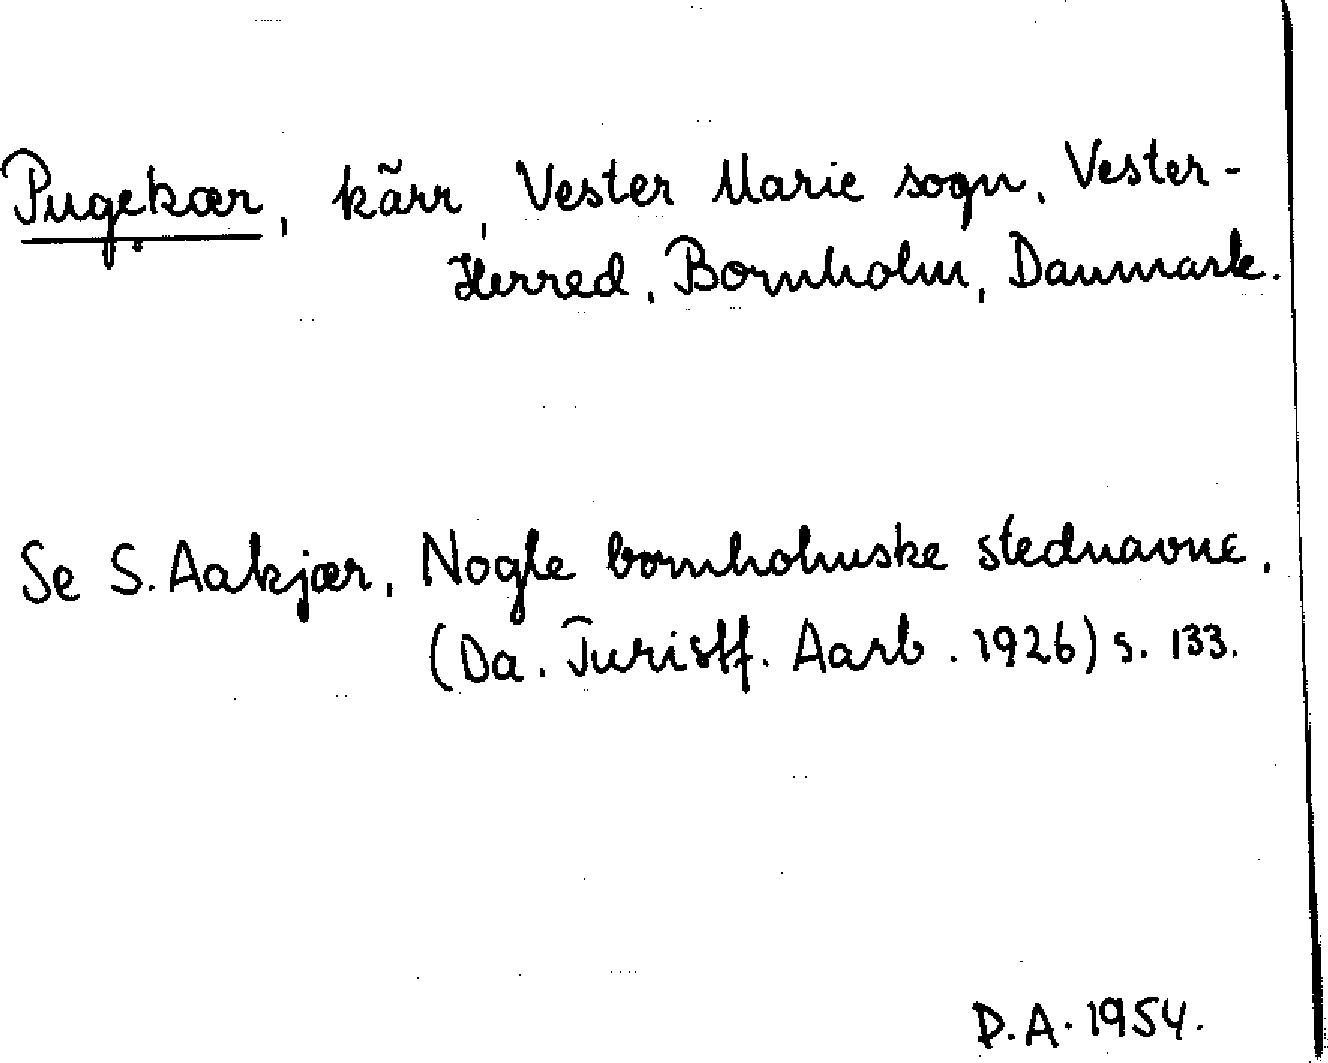 Pugekær, kärr, Vester Marie sogn, Vester-
Herred, Bornholm, Danmark.
Se S. Aakjær, Nogle bornholmske stednavne,
(Da. Turistf. Aarb. 1926) s. 133.
D.A. 1954.